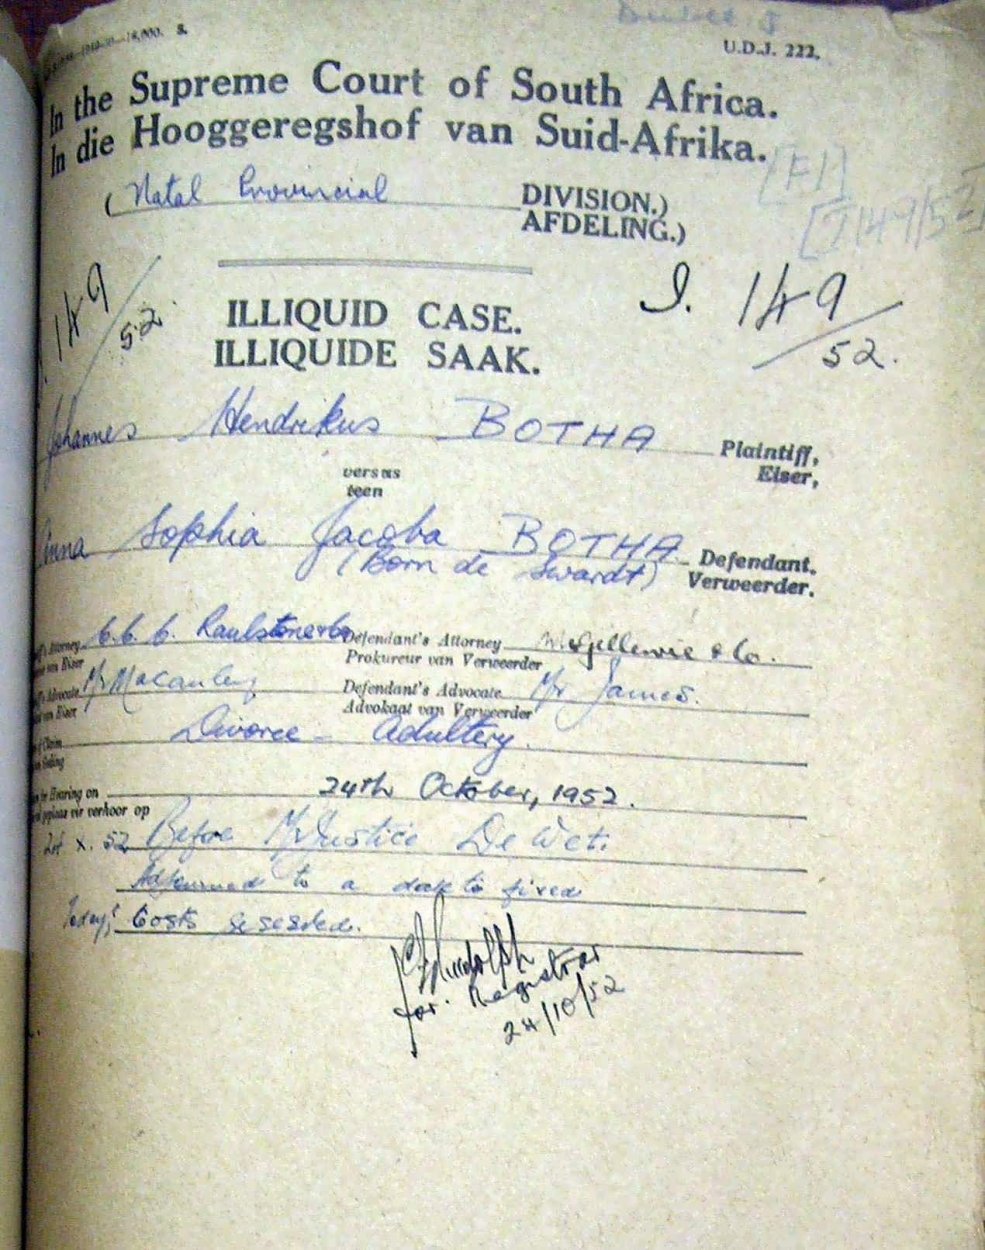 18,000. S.
U.D.J. 222.
In the Supreme Court of South Africa.
In die Hooggeregshof van Suid-Afrika.
(Natal Provincial DIVISION.)
AFDELING.)
[F1]
[I149/52]
149/52.
I. 149/52.
ILLIQUID CASE.
ILLIQUIDE SAAK.
Johannes Hendrikus BOTHA Plaintiff,
Eiser,
versus
teen
Anna Sophia Jacoba BOTHA Defendant.
(Born de Swardt) Verweerder.
Attorney C. C. C. Raulstone & Co Defendant's Attorney McGillewie & Co.
van Eiser Prokureur van Verweerder
Advocate Mr Macauley Defendant's Advocate Mr James.
van Eiser Advokaat van Verweerder
Claim Divorce - Adultery.
for Hearing on 24th October, 1952.
geplaas vir verhoor op
24 X. 52 Before Mr Justice De Wet.
Adjourned to a date to fixed
Today's Costs reserved.
for: Registrar
24/10/52